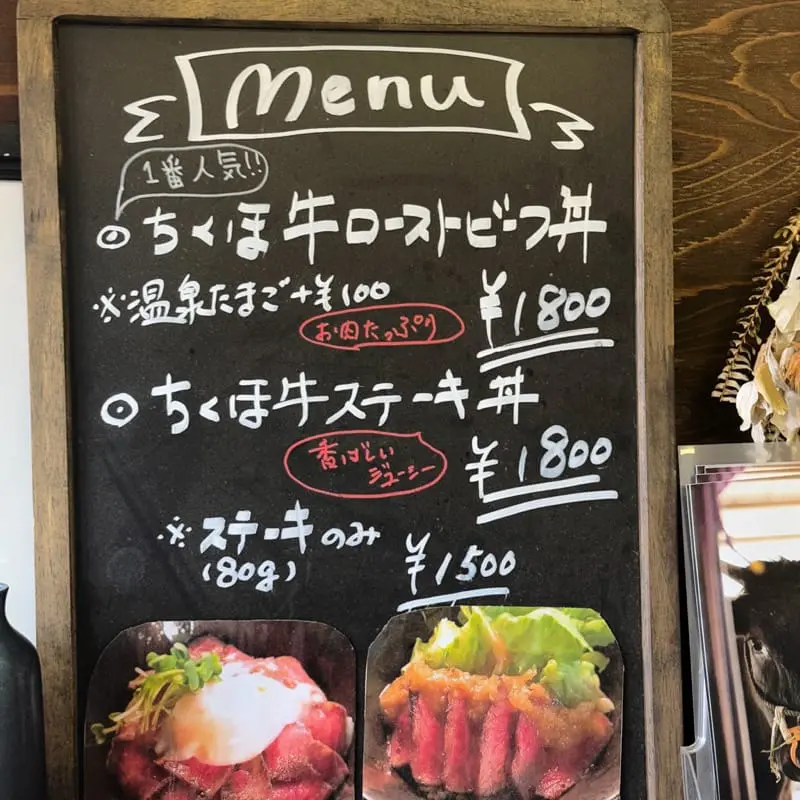 Menu
1番人気!!
◎ちくほ牛ローストビーフ丼
※温泉たまご+¥100
¥1800
お肉たっぷり
◎ちくほ牛ステーキ丼
¥1800
香ばしい
ジューシー
※ステーキのみ
(80g)
¥1500